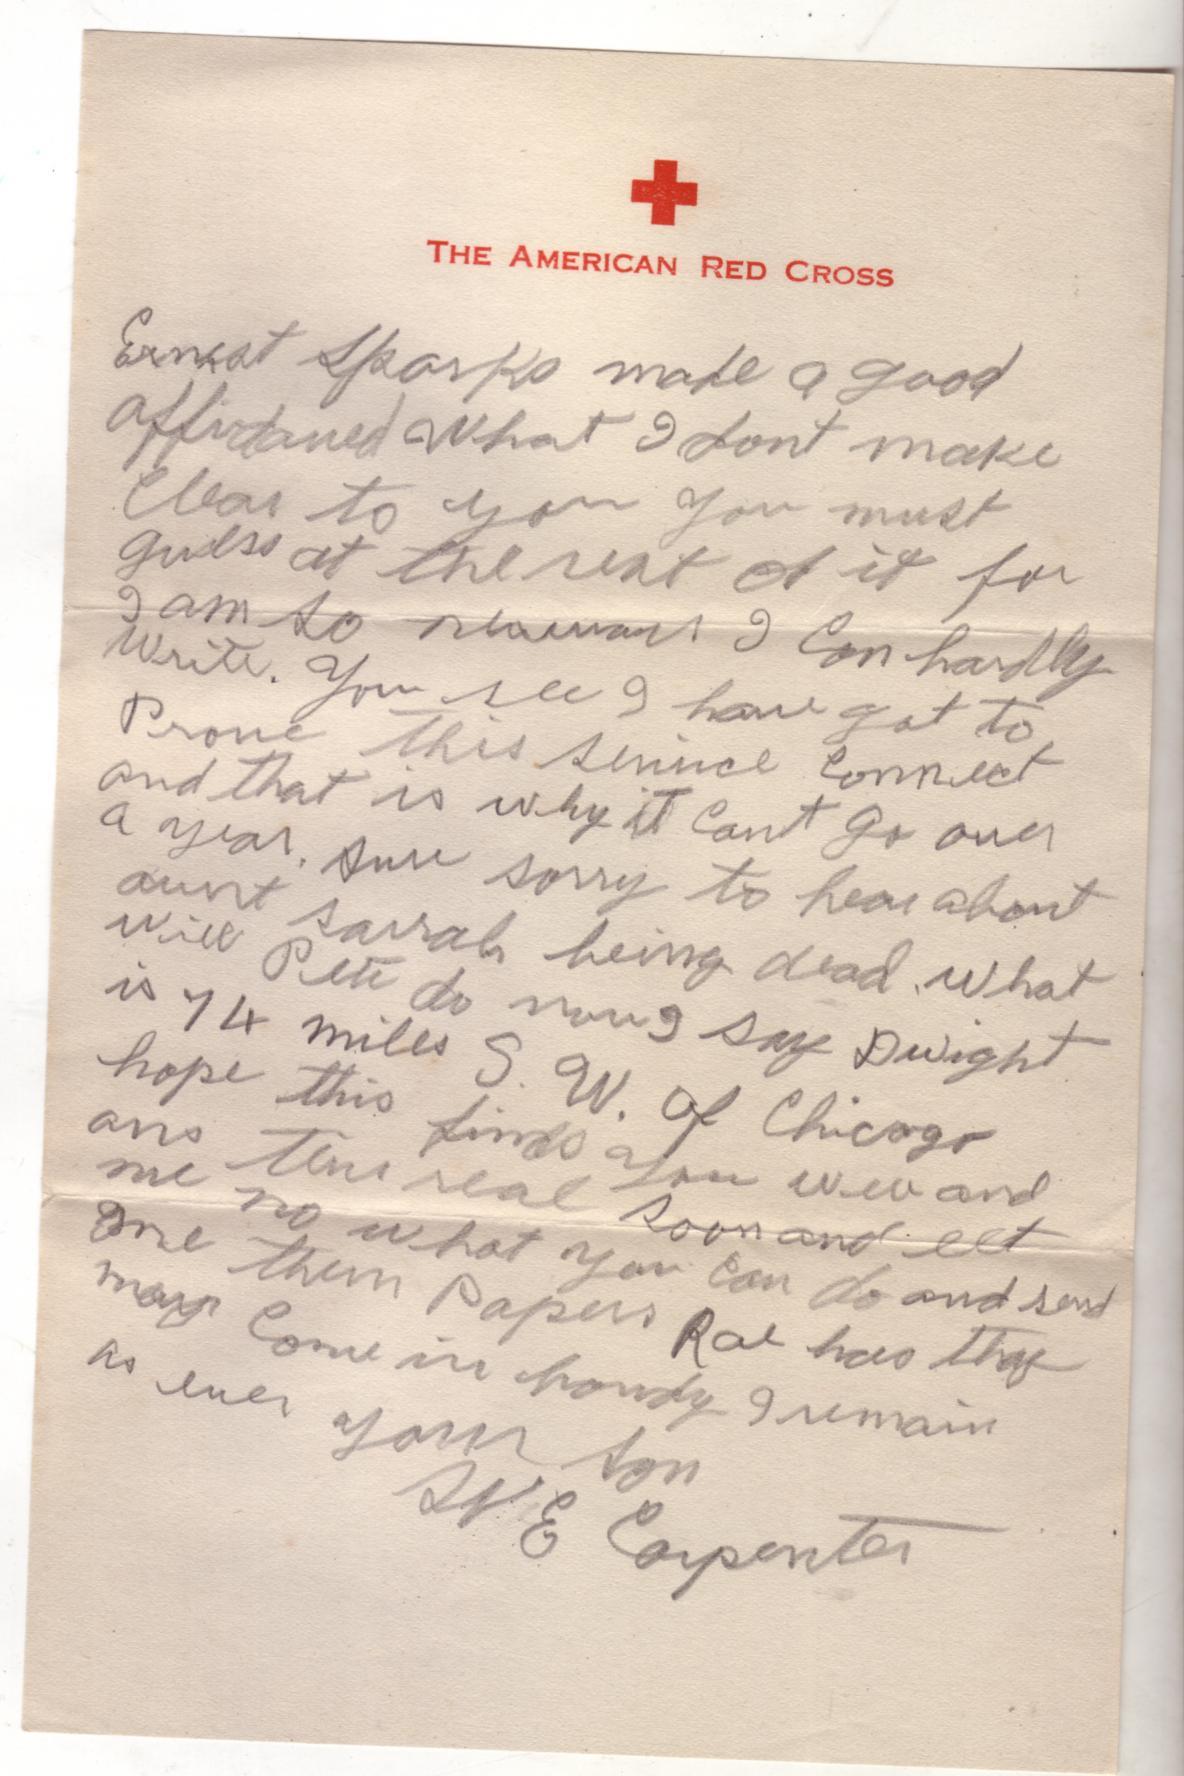 THE AMERICAN RED CROSS
Ernest Sparks made a good
What I dont make
Clear to you you must
guess at the rest of it for
I am so I Can hardly
Write. You see I have got to
Prove this service Connect
and that is why it Cant go over
a year. Sure sorry to hear about
aunt Sarrah being dead. What
will Pete do now I say Dwight
is 74 miles S. W. of Chicago
hope this finds you well and
ans real soon and let
me no what you can do and send
me them Papers Rae has they
may Come in handy I remain
as ever
your son
E Carpenter